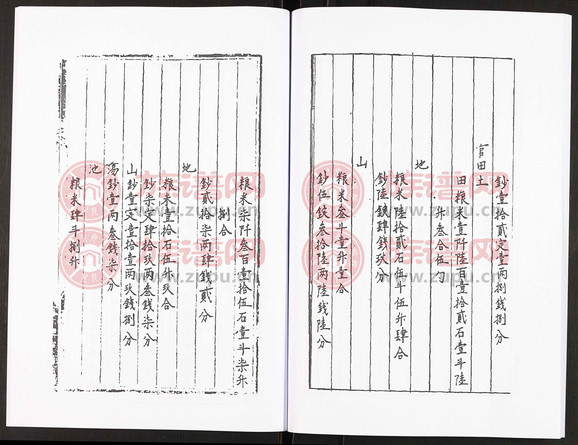 鈔壹拾貳文壹兩捌錢捌分
官田土
田粮米壹阡陸百壹拾貳石壹斗陸
升叁合伍勺
地
粮米陸拾貳石伍斗伍升肆合
鈔陸錠肆錢玖分
山
粮米叁斗壹升壹合
鈔伍錠叁拾陸兩陸錢陸分
粮米柒阡叁百壹拾伍石壹斗柒升
捌合
鈔貳拾柒兩肆錢貳分
地
粮米壹拾石伍升玖合
鈔柒文肆拾玖兩叁錢柒分
山鈔壹文壹拾壹兩玖錢捌分
蕩鈔壹兩叁錢柒分
池
粮米肆斗捌升
族谱网
www.zupu.cn
族谱网
www.zupu.cn